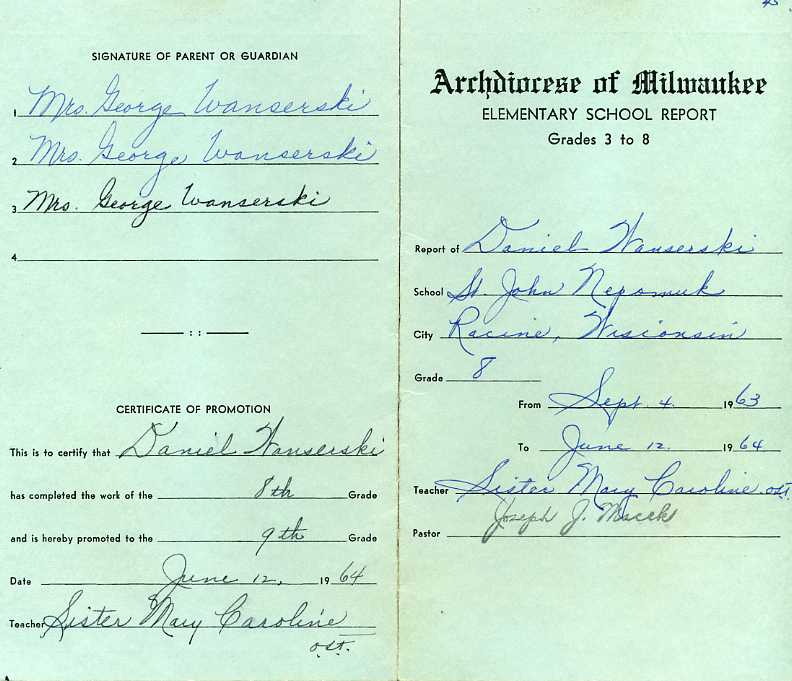 SIGNATURE OF PARENT OR GUARDIAN
1 Mrs. George Wanserski
2 Mrs. George Wanserski
3 Mrs. George Wanserski
4
CERTIFICATE OF PROMOTION
This is to certify that Daniel Wanserski
has completed the work of the 8th Grade
and is hereby promoted to the 9th Grade
Date June 12, 1964
Teacher Sister Mary Caroline
o.s.f.
Archdiocese of Milwaukee
ELEMENTARY SCHOOL REPORT
Grades 3 to 8
Report of Daniel Wanserski
School St. John Nepomuk
City Racine, Wisconsin
Grade 8
From Sept. 4. 1963
To June 12. 1964
Teacher Sister Mary Caroline o.s.f.
Pastor Joseph J. Macek